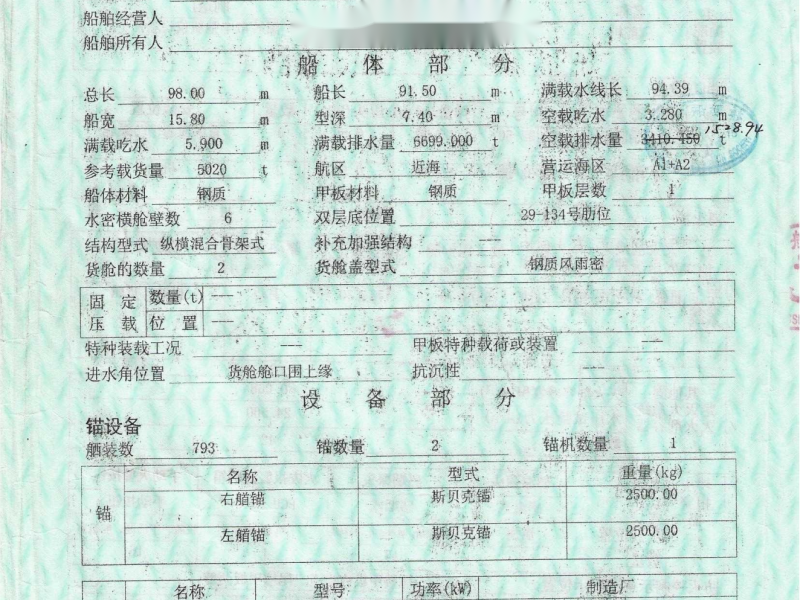 船舶经营人
船舶所有人
船 体 部 分
总长 98.00 m 船长 91.50 m 满载水线长 94.39 m
船宽 15.80 m 型深 7.40 m 空载吃水 3.280 m
满载吃水 5.900 m 满载排水量 6699.000 t 空载排水量 3410.450 t 1528.94
参考载货量 5020 t 航区 近海 营运海区 A1+A2
船体材料 钢质 甲板材料 钢质 甲板层数 1
水密横舱壁数 6 双层底位置 29-134号肋位
结构型式 纵横混合骨架式 补充加强结构 ---
货舱的数量 2 货舱盖型式 钢质风雨密
固 定 数量(t) ---
压 载 位 置 ---
特种装载工况 --- 甲板特种载荷或装置 ---
进水角位置 货舱舱口围上缘 抗沉性 ---
设 备 部 分
锚设备
舾装数 793 锚数量 2 锚机数量 1
名称 型式 重量(kg)
锚 右艏锚 斯贝克锚 2500.00
左艏锚 斯贝克锚 2500.00
名称 型号 功率(kW) 制造厂